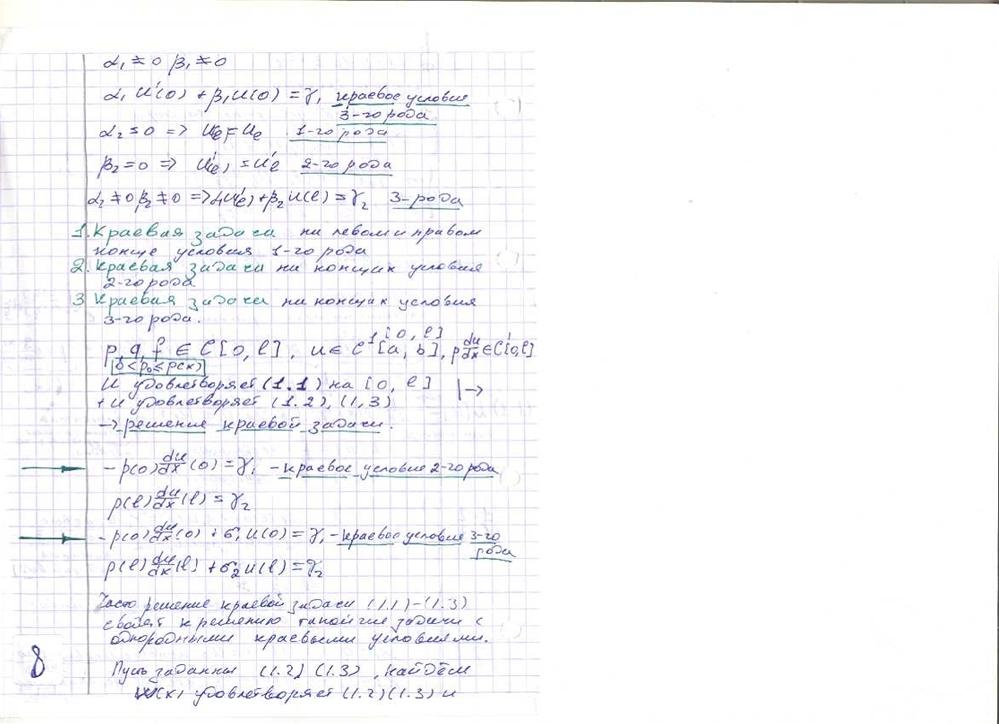 α₁ ≠ 0 β₁ ≠ 0
α₁ u'(0) + β₁ u(0) = γ₁ краевое условие
3-го рода
α₂ = 0 => u(e) = ue 1-го рода
β₂ = 0 => u'(e) = u'e 2-го рода
α₂ ≠ 0 β₂ ≠ 0 => α₂u'(e) + β₂ u(l) = γ₂ 3-рода
1. Краевая задача на левом и правом
конце условия 1-го рода
2. Краевая задача на концах условия
2-го рода
3 Краевая задача на концах условия
3-го рода.
p, q, f ∈ C[0, l], u ∈ C¹[a, b], [0, l] p du/dx ∈ C'[0,l]
0 < p₀ ≤ p(x)
u удовлетворяет (1.1) на [0, l] |→
+ u удовлетворяет (1.2), (1,3)
→ решение краевой задачи.
→ - p(0) du/dx (0) = γ₁ - краевое условие 2-го рода
p(l) du/dx (l) = γ₂
→ - p(0) du/dx (0) + σ₁ u(0) = γ₁ - краевое условие 3-го
рода
p(l) du/dx (l) + σ₂ u(l) = γ₂
Часто решение краевой задачи (1.1) - (1.3)
сводят к решению такой же задачи с
однородными краевыми условиями.
Пусть заданны (1.2) (1.3), найдём
(x) удовлетворяет (1.2) (1.3) и
8